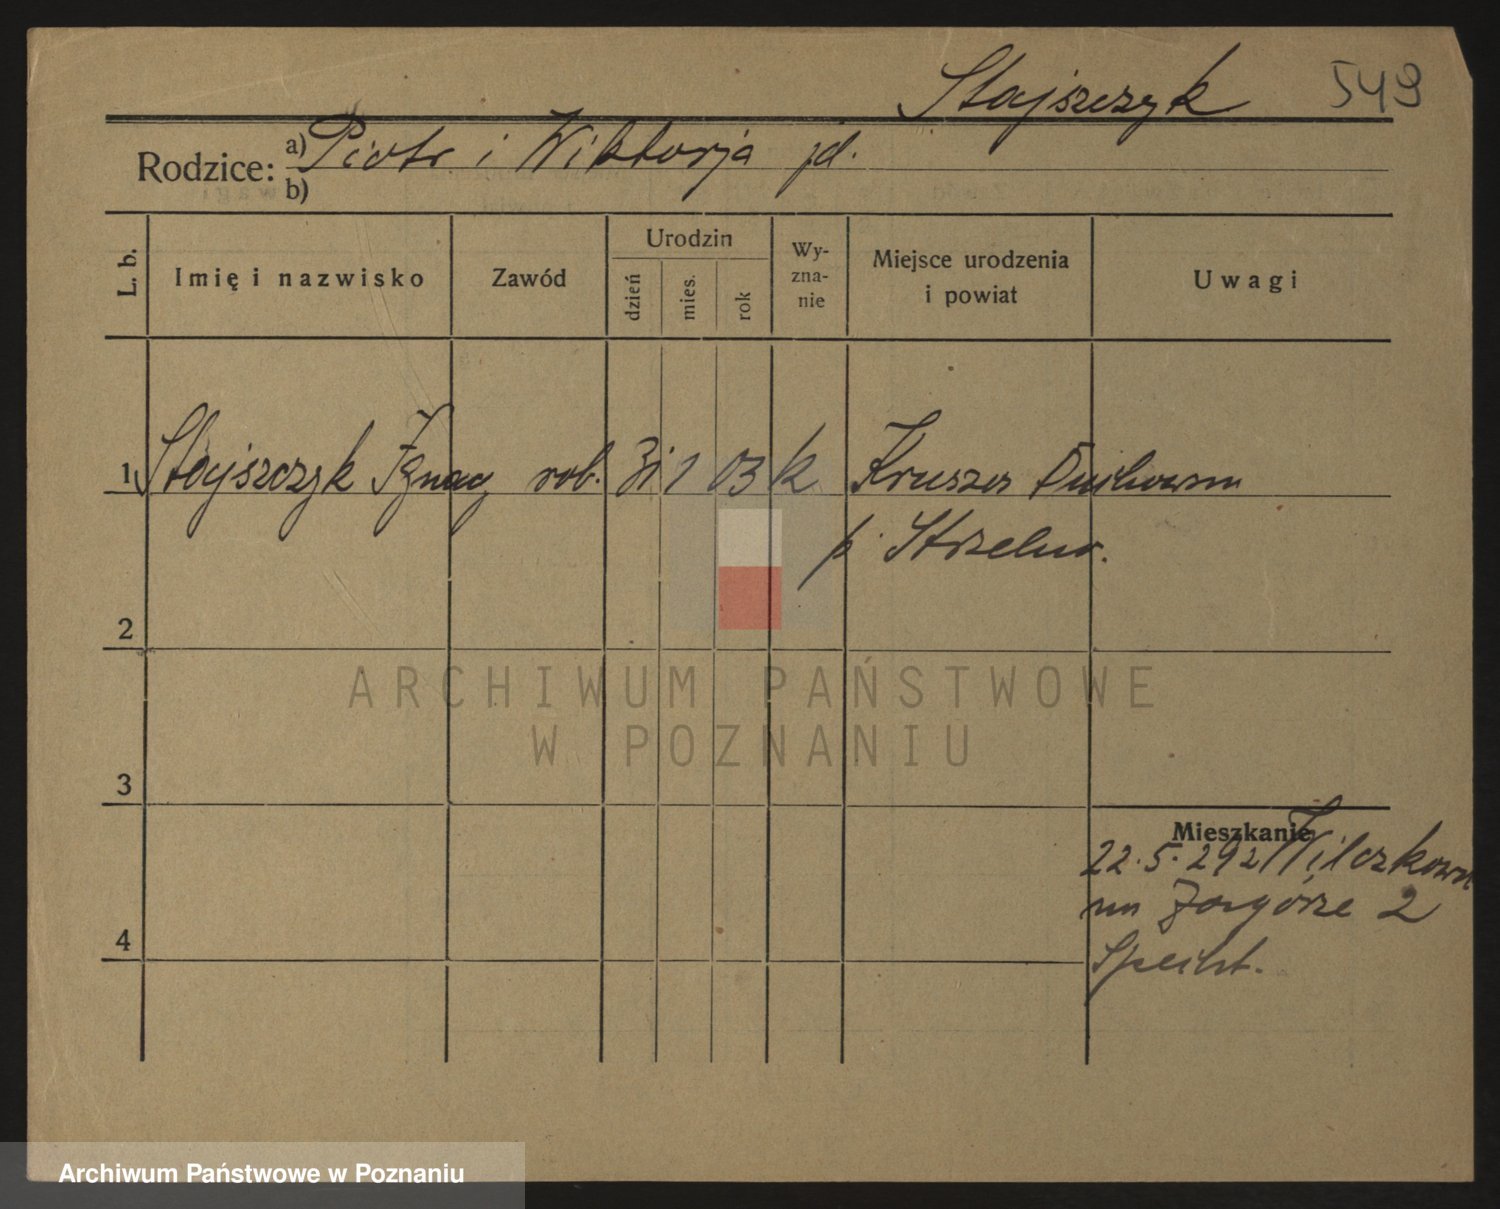 Stajszczyk 549
Rodzice: a) Piotr i Wiktorja jd.
b)
L. b. Imię i nazwisko Zawód Urodzin dzień mies. rok Wy-zna-nie Miejsce urodzenia i powiat Uwagi
1 Stajszczyk Ignacy rob. 31 1 03 k Krusza Duchowna
p. Strzelno.
2
ARCHIWUM PAŃSTWOWE
W POZNANIU
3
Mieszkanie
22.5.29 z Wilczkowa
na Zagórze 2
Specht.
4
Archiwum Państwowe w Poznaniu